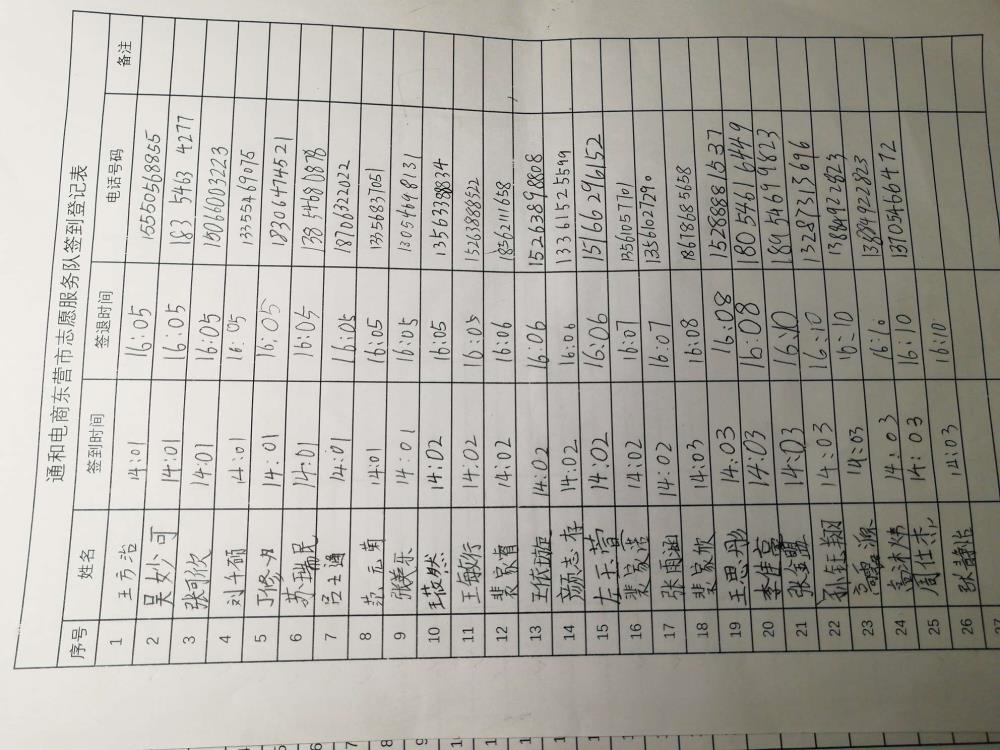 通和电商东营市志愿服务队签到登记表
序号 姓名 签到时间 签退时间 电话号码 备注
1 王方治 14:01 16:05 15550568855
2 吴妙可 14:01 16:05 183 5463 4277
3 张可欣 14:01 16:05 15066003223
4 刘千硕 14:01 16:05 13355469075
5 丁修为 14:01 16:05 18306474521
6 苏瑞民 14:01 16:05 13854680878
7 吕士通 14:01 16:05 18706632022
8 范元菊 14:01 16:05 13356837051
9 张美乐 14:01 16:05 13054698131
10 王筱然 14:02 16:05 13563388834
11 王敏行 14:02 16:05 15263888522
12 裴家睿 14:02 16:06 18562111658
13 王依璇 14:02 16:06 15263898808
14 颜志存 14:02 16:06 13361525599
15 左玉萱 14:02 16:06 15166296152
16 裴家萱 14:02 16:07 13561057701
17 张雨涵 14:02 16:07 13561027290
18 裴家欣 14:03 16:08 18678685658
19 王思彤 14:03 16:08 15288881537
20 李佳宜 14:03 16:08 18054616449
21 张金盟 14:03 16:10 18954699823
22 孙钰翔 14:03 16:10 13287313696
23 14:03 16:10 13884922823
24 14:03 16:10 13884922823
25 周仕杰 14:03 16:10 13705466472
26 张静浩 14:03 16:10
27